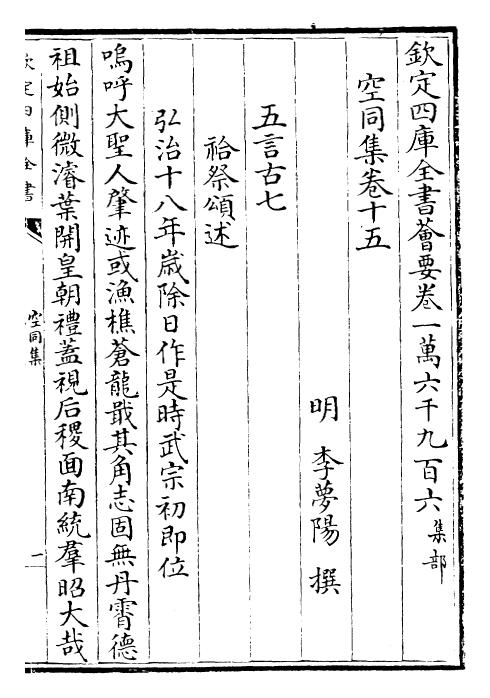 欽定四庫全書薈要卷一萬六千九百六集部
空同集卷十五
明 李夢陽 撰
五言古七
祫祭頌述
弘治十八年歲除日作是時武宗初即位
嗚呼大聖人肇迹或漁樵蒼龍戢其角志固無丹霄德
祖始側微濬葉開皇朝禮蓋視后稷面南統羣昭大哉
欽定四庫全書
空同集
一